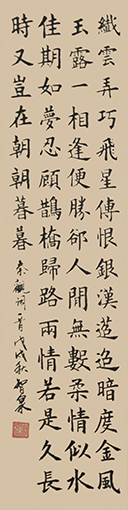 纖雲弄巧飛星傳恨銀漢迢迢暗度金風
玉露一相逢便勝郤人間無數柔情似水
佳期如夢忍顧鵲橋歸路兩情若是久長
時又豈在朝朝暮暮
秦觀詞一首戊戌秋智泉